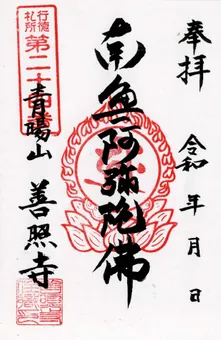 奉拝
令和 年 月 日
南無阿弥陀佛
行徳
札所
第二十四番
青暘山 善照寺